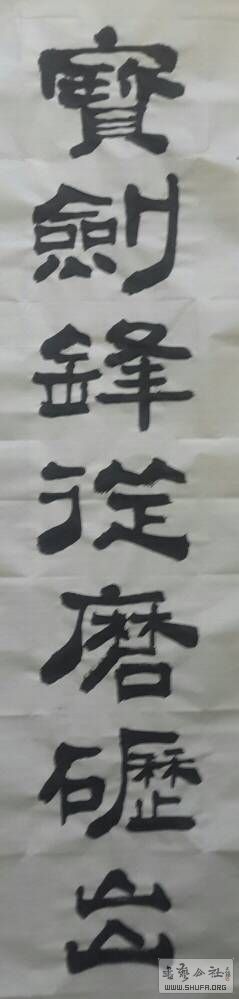 寶劍鋒從磨礪出
書藝公社
WWW.SHUFA.ORG